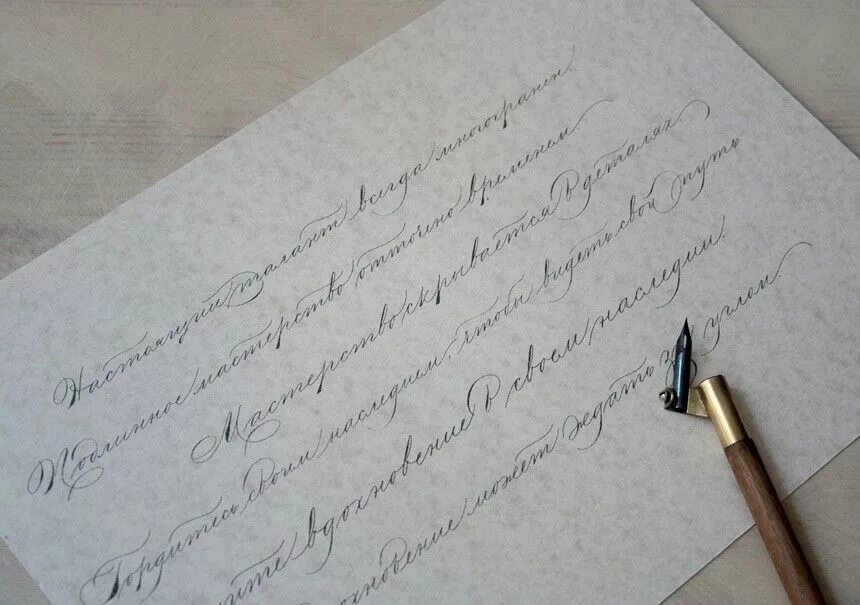 Настоящий талант всегда многогранен
Подлинное мастерство отточено временем.
Мастерство скрывается в деталях
Гордитесь своим наследием, чтобы видеть свой путь
вдохновение в своем наследии.
может ждать за углом.